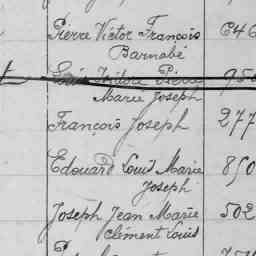 Pierre Victor François 646
Barnabé
Isidore Pierre 95
Marie Joseph
François Joseph 277
Edouard Louis Marie 850
Joseph
Joseph Jean Marie 502
Clément Louis